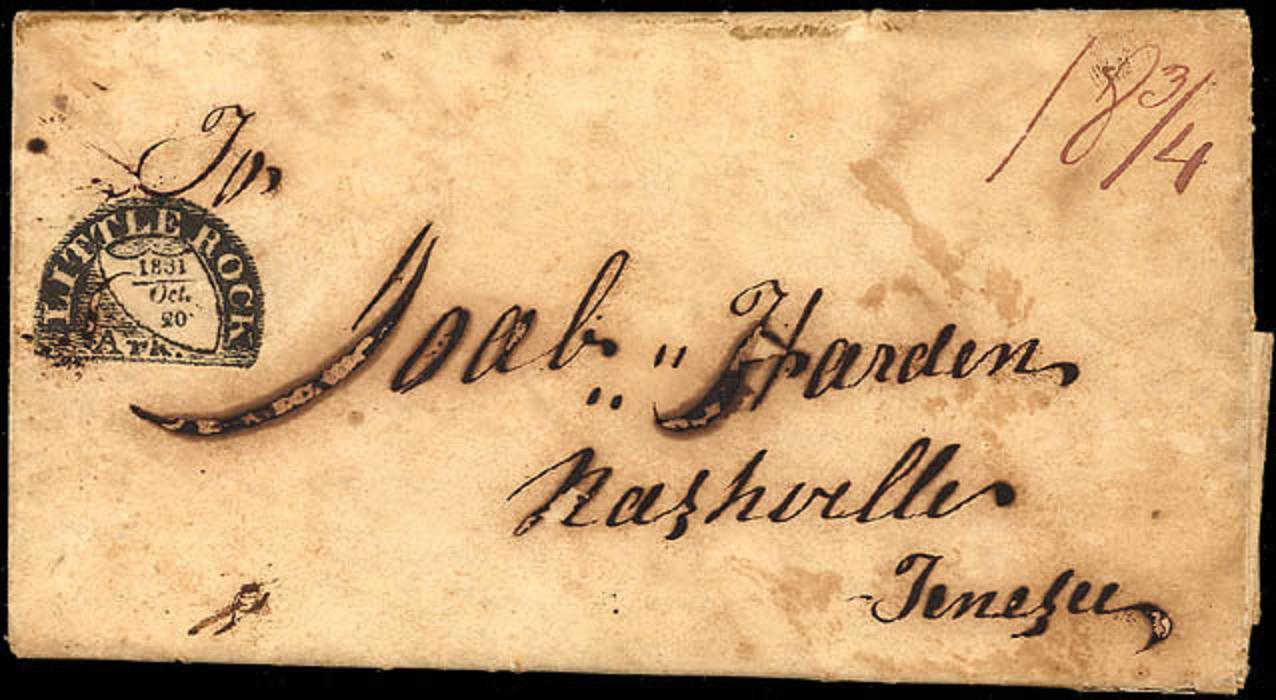 18 3/4
To,
LITTLE ROCK
1831
Oct.
20
Ark.
Joab " Harden
Nashville
Tenessee